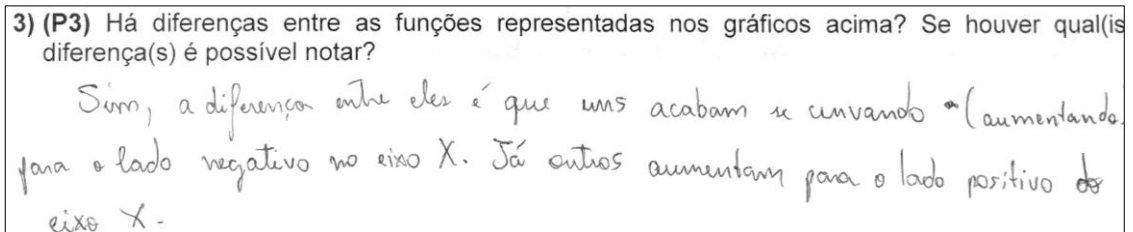 3) (P3) Há diferenças entre as funções representadas nos gráficos acima? Se houver qual(is
diferença(s) é possível notar?
Sim, a diferença entre eles é que uns acabam se curvando (aumentando
para o lado negativo no eixo X. Já outros aumentam para o lado positivo do
eixo X.